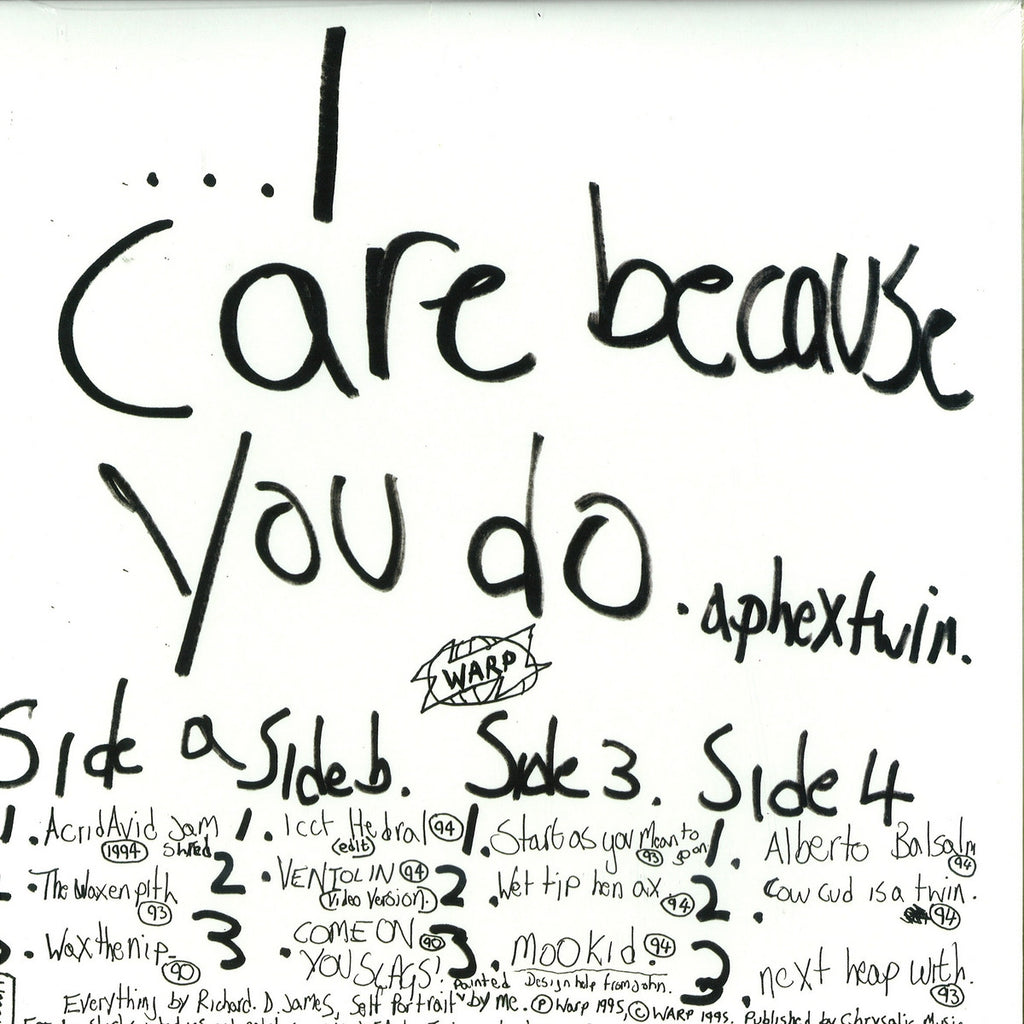 ...I
Care because
You do. aphextwin.
WARP
Side a
1. AcridAvid Jam
Shred 1994
. The Waxen pith 93
. Wax the nip 90
Side b.
1. Icct Hedral 94
(edit)
2. VENTOLIN 94
(Video Version).
3. COME ON 90
YOU SLAGS!
Side 3.
1. Start as you Mean to
go on 93
2. Wet tip hen ax. 94
3. MOOKid. 94
Side 4
1. Alberto Balsalm 94
2. Cow cud is a twin. 94
3. next heap with. 93
Everything by Richard. D. James, Self Portrait painted by me. Design help from John. Ⓟ Warp 1995, © WARP 1995. Published by Chrysalis Music